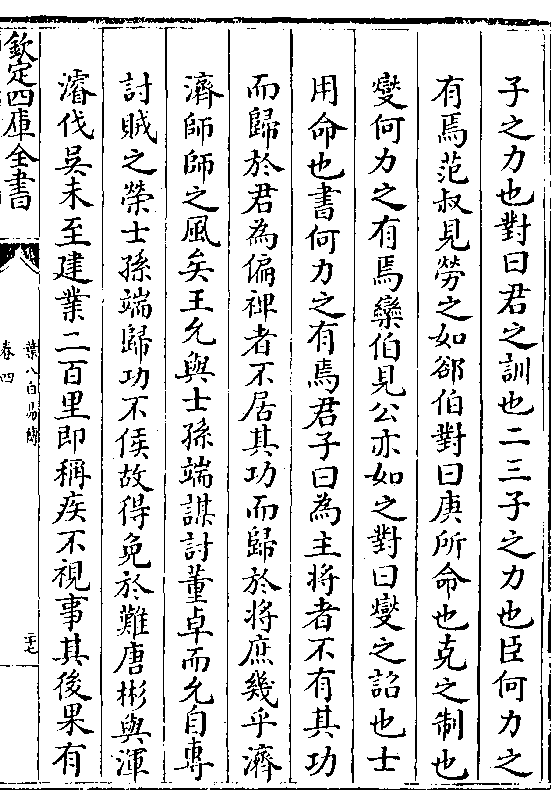 子之力也對曰君之訓也二三子之力也臣何力之
有焉范叔見勞之如郤伯對曰庚所命也克之制也
燮何力之有焉欒伯見公亦如之對曰燮之詔也士
用命也書何力之有焉君子曰為主將者不有其功
而歸於君為偏裨者不居其功而歸於將庶幾乎濟
濟師師之風矣王允與士孫端謀討董卓而允自專
討賊之榮士孫端歸功不侯故得免於難唐彬與渾
濬伐吳未至建業二百里即稱疾不視事其後果有
欽定四庫全書
葉八白易傳
卷四